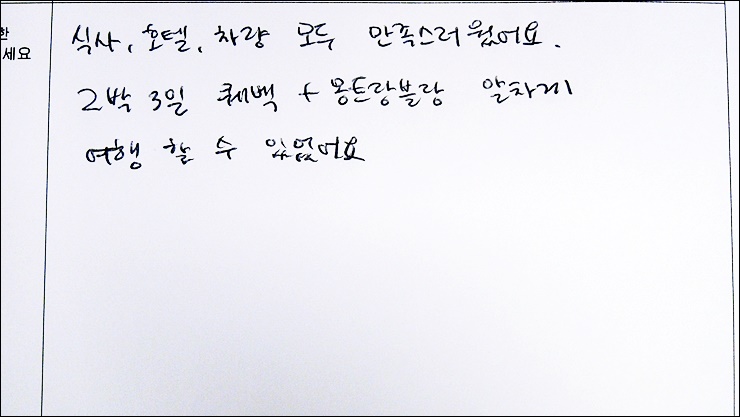 한
세요
식사, 호텔, 차량 모두 만족스러웠어요.
2박 3일 퀘백 + 몽트랑블랑 알차게
여행 할 수 있었어요